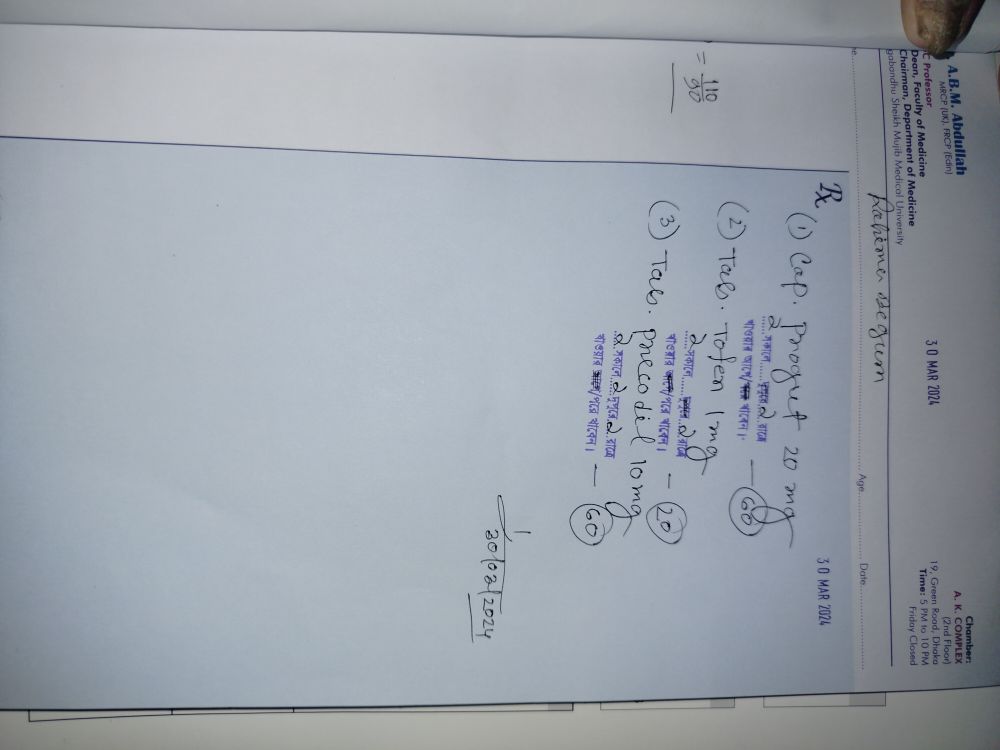 A.B.M. Abdullah
MRCP (UK), FRCP (Edin)
C Professor
Dean, Faculty of Medicine
Chairman, Department of Medicine
gabandhu Sheikh Mujib Medical University
30 MAR 2024
Chamber:
A. K. COMPLEX
(2nd Floor)
19, Green Road, Dhaka
Time: 5 PM to 10 PM
Friday Closed
Rahima Begum
e.................... Age............ Date....................
30 MAR 2024
Rx
(1) Cap. Progut 20 mg
2 সকালে...... দুপুরে 2 রাত্রে
খাওয়ার আগে/পরে খাবেন। — 60
(2) Tab. Tofen 1mg
2 সকালে...... দুপুরে 2 রাত্রে
খাওয়ার আগে/পরে খাবেন। — 20
= 110/90
(3) Tab. precodil 10 mg
2 সকালে 2 দুপুরে 2 রাত্রে
খাওয়ার আগে/পরে খাবেন। — 60
30/03/2024